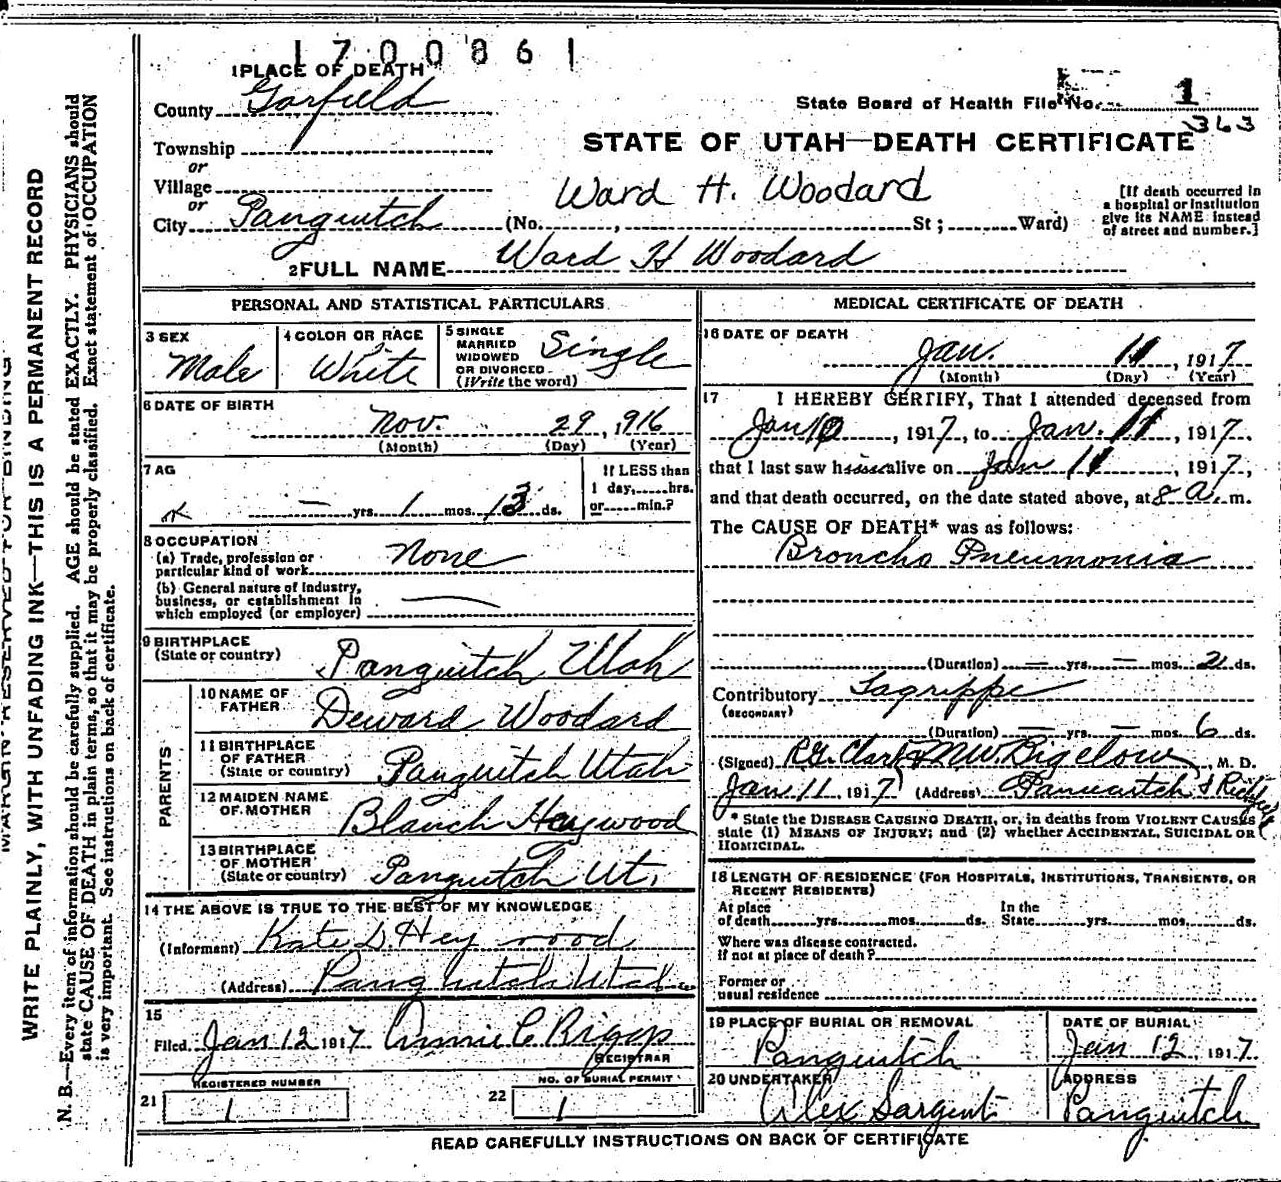 1700861
1 PLACE OF DEATH
County Garfield
State Board of Health File No. 1
363
Township
or
Village
or
City Panguitch
STATE OF UTAH—DEATH CERTIFICATE
Ward H. Woodard
(No. , St ; Ward)
[If death occurred in
a hospital or institution
give its NAME instead
of street and number.]
2 FULL NAME Ward H Woodard
PERSONAL AND STATISTICAL PARTICULARS
3 SEX
Male
4 COLOR OR RACE
White
5 SINGLE
MARRIED
WIDOWED
OR DIVORCED
(Write the word)
Single
6 DATE OF BIRTH
Nov. 29, 1916
(Month) (Day) (Year)
7 AG
— yrs. 1 mos. 13 ds.
If LESS than
1 day, hrs.
or min.?
8 OCCUPATION
(a) Trade, profession or
particular kind of work None
(b) General nature of industry,
business, or establishment in
which employed (or employer) —
9 BIRTHPLACE
(State or country) Panguitch Utah
PARENTS
10 NAME OF
FATHER Deward Woodard
11 BIRTHPLACE
OF FATHER
(State or country) Panguitch Utah
12 MAIDEN NAME
OF MOTHER Blanch Heywood
13 BIRTHPLACE
OF MOTHER
(State or country) Panguitch Ut.
14 THE ABOVE IS TRUE TO THE BEST OF MY KNOWLEDGE
(Informant) Kate D. Heywood
(Address) Panguitch Utah
15
Filed Jan 12 1917 Annie C Riggs
REGISTRAR
21 REGISTERED NUMBER
1
22 NO. OF BURIAL PERMIT
1
MEDICAL CERTIFICATE OF DEATH
16 DATE OF DEATH
Jan. 11, 1917
(Month) (Day) (Year)
17 I HEREBY CERTIFY, That I attended deceased from
Jan 10, 1917, to Jan. 11, 1917,
that I last saw him alive on Jan 11, 1917,
and that death occurred, on the date stated above, at 8 a. m.
The CAUSE OF DEATH* was as follows:
Broncho Pneumonia
(Duration) — yrs. — mos. 2 ds.
Contributory Lagrippe
(SECONDARY)
(Duration) — yrs. — mos. 6 ds.
(Signed) R.G. Clark & M.W. Bigelow, M. D.
Jan 11, 1917 (Address) Panguitch &
* State the DISEASE CAUSING DEATH, or, in deaths from VIOLENT CAUSES
state (1) MEANS OF INJURY; and (2) whether ACCIDENTAL, SUICIDAL OR
HOMICIDAL.
18 LENGTH OF RESIDENCE (FOR HOSPITALS, INSTITUTIONS, TRANSIENTS, OR
RECENT RESIDENTS)
At place
of death yrs. mos. ds.
In the
State yrs. mos. ds.
Where was disease contracted.
If not at place of death?
Former or
usual residence
19 PLACE OF BURIAL OR REMOVAL
Panguitch
DATE OF BURIAL
Jan 12 1917
20 UNDERTAKER
Alex Sargent
ADDRESS
Panguitch
READ CAREFULLY INSTRUCTIONS ON BACK OF CERTIFICATE
MARGIN RESERVED FOR BINDING
WRITE PLAINLY, WITH UNFADING INK—THIS IS A PERMANENT RECORD
N. B.—Every item of information should be carefully supplied. AGE should be stated EXACTLY. PHYSICIANS should
state CAUSE OF DEATH in plain terms, so that it may be properly classified. Exact statement of OCCUPATION
is very important. See instructions on back of certificate.